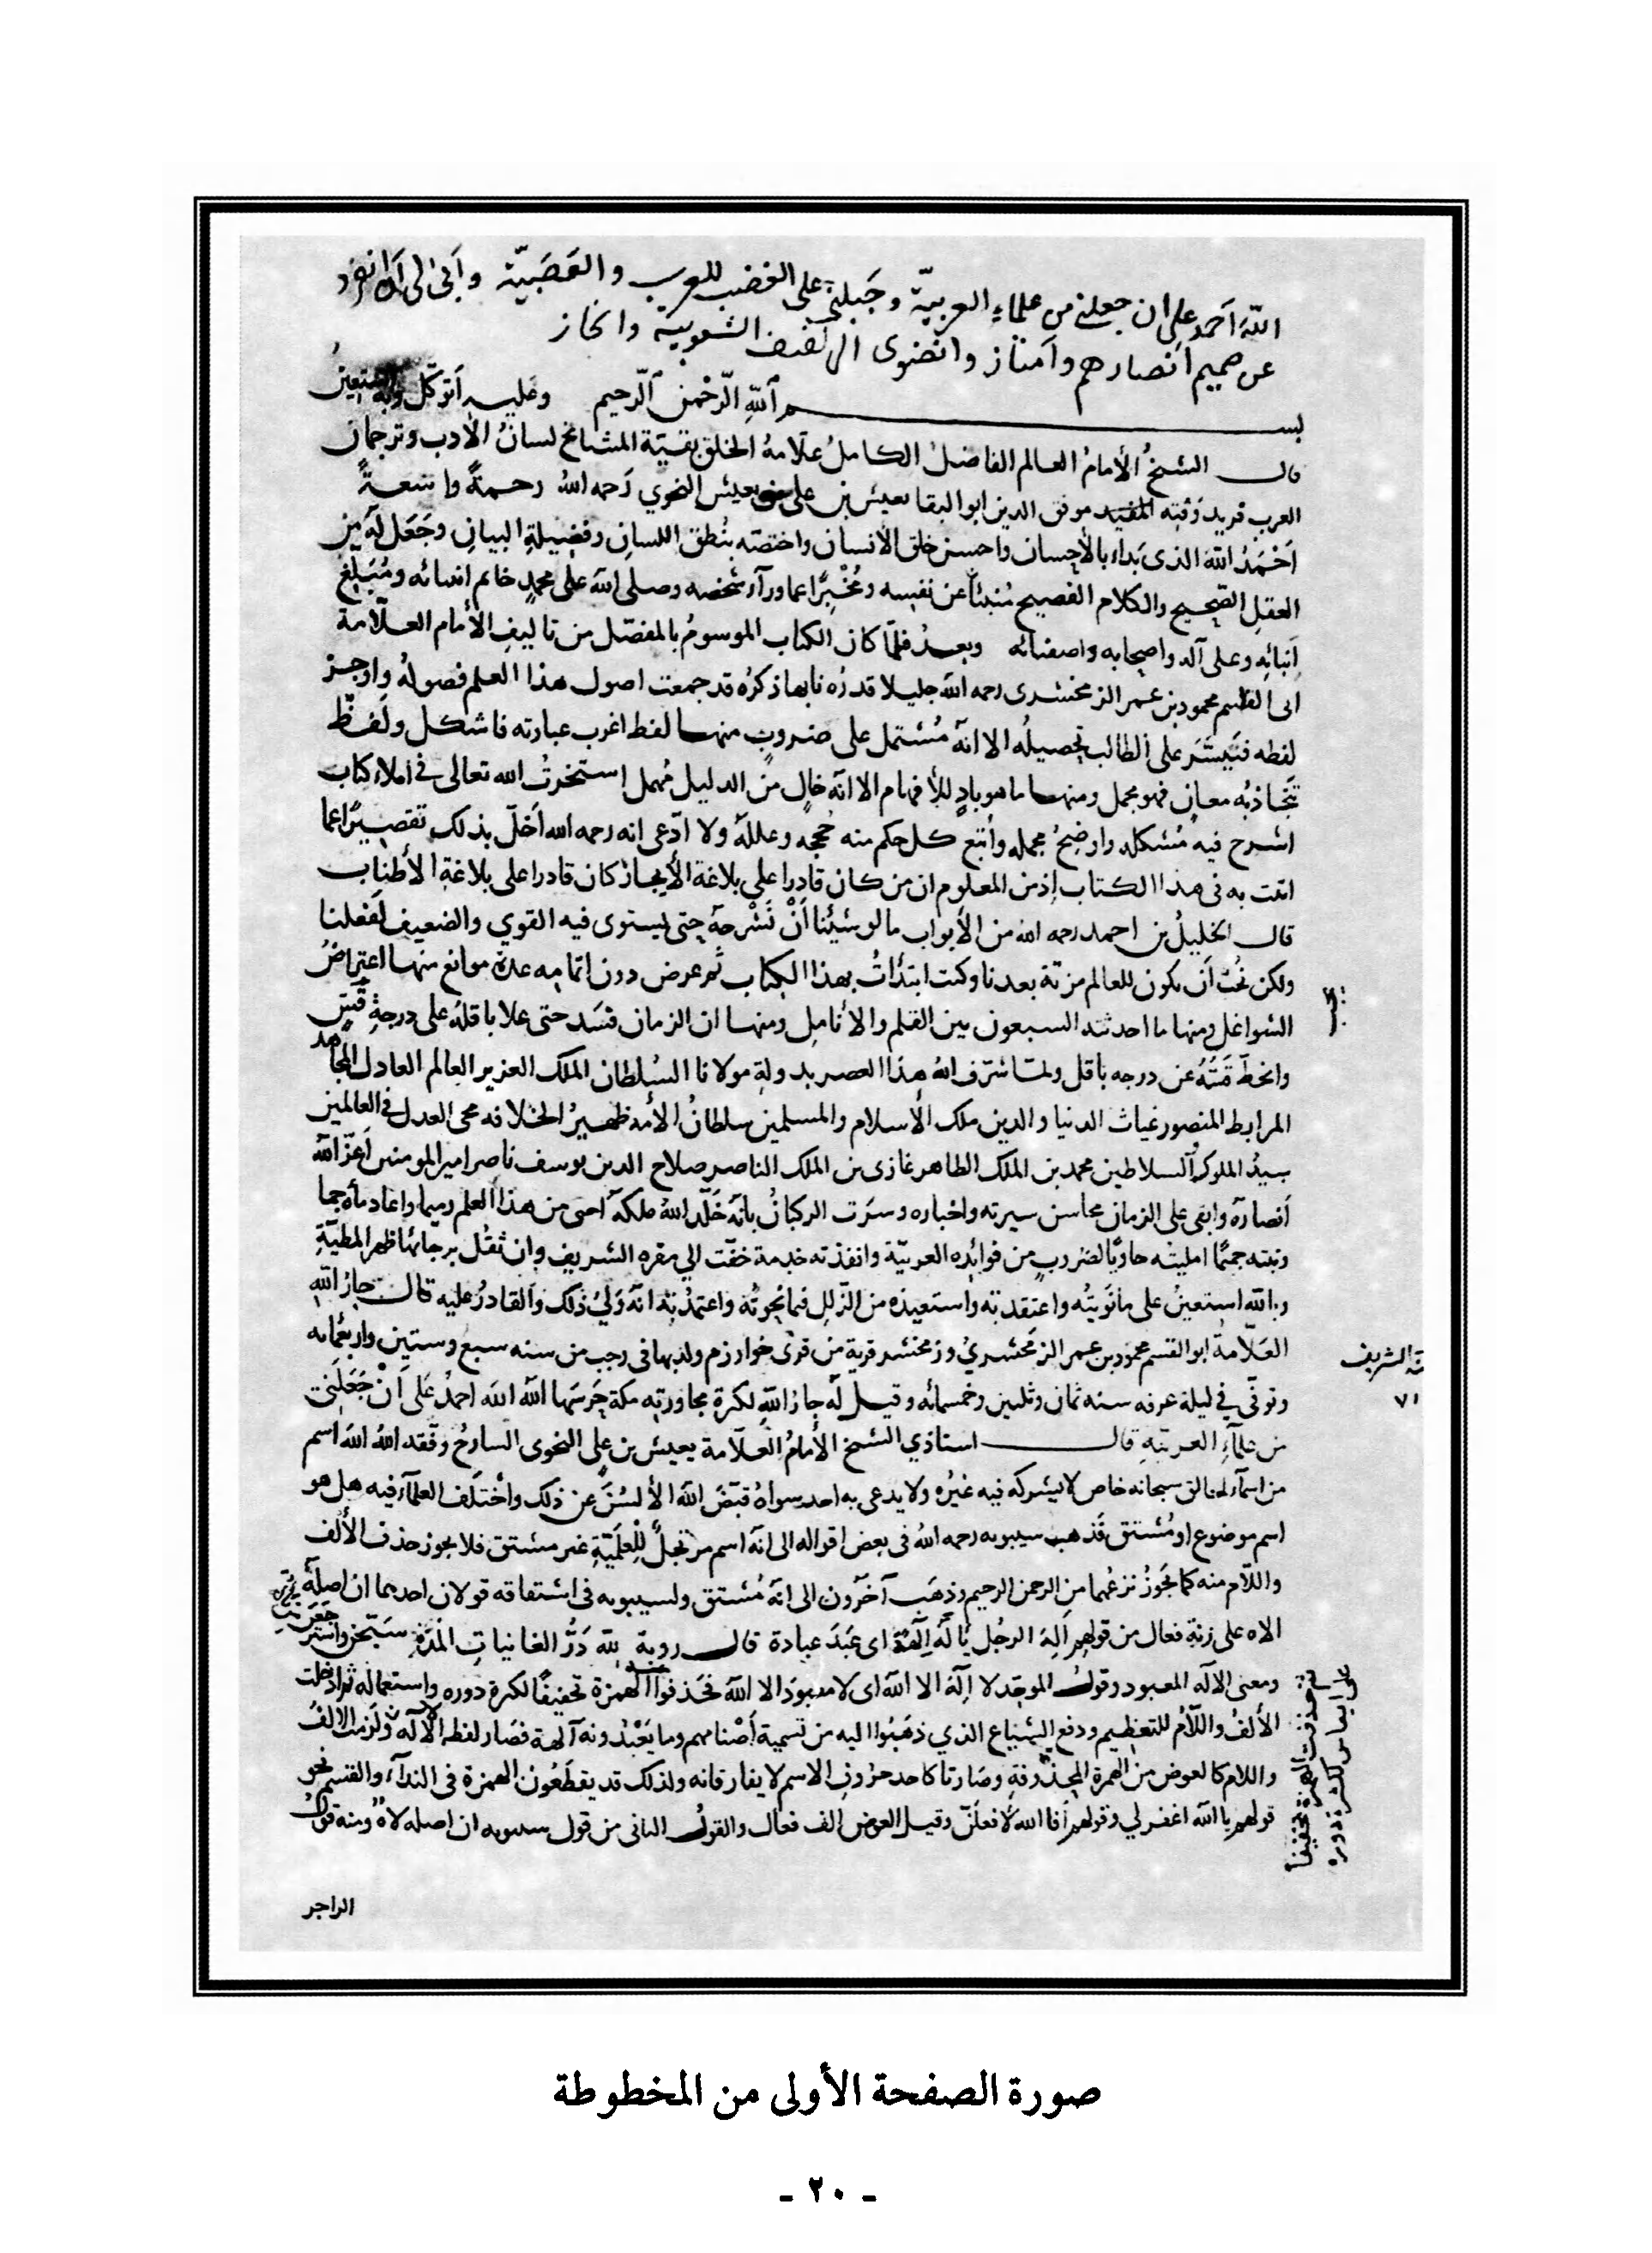 اللهَ اَحمد على ان جعلنى من علماء العربيّة وجَبلنى على الغضب للعرب والعَصَبيّة وأبى لى أن انفرد
عن صميم انصارهم وامتاز وانضوى الى لفيف الشعوبية وانحاز
بسم اللهِ الرّحمن الرّحيم وعليه اَتوكّل وبه استعينُ
قال الشيخُ الأمامُ العالم الفاضل الكاملُ علّامة الخلق بقيّة المشائخ لسانُ الأدب وترجمان
العرب فريد وقته المفيد موفق الدين ابو البقا يعيش بن على بن يعيش النحوي رَحمه اللهُ رحمةً واسعةً
اَحْمَدُ اللهَ الذى بَدَاء بالأحسان واحسن خلق الأنسان واختصّه بنُطق اللسانِ وفضيلةِ البيانِ وجَعَل له مِن
العقلِ الصّحيح والكلام الفصيح مُنبئًا عن نفسه ومُخْبِرًا عما ورآء شخصه وصلى الله على محمدٍ خاتم انبيائه ومُبَلِّغ
اَنبائِه وعلى آله واصحابه واصفيائه وبعدُ فلمّا كان الكتاب الموسومُ بالمفصّل من تاليف الأمام العلّامة
ابى القسم محمود بن عمر الزمخشرى رحمه الله جليلا قدرُه نابها ذكرُه قد جمعت اصول هذا العلم فصولُه واوجز
لفظه فتيسّرَ على الطالب تحصيلُه الا انّه مُشتمل على ضروبٍ منها لفظ اغرب عبارته فاشكل ولفظٌ
تتجاذبُه معانٍ فهو مجمل ومنها ما هو بادٍ للأفهام الا انّه خالٍ من الدليل مُهمل استخرتُ الله تعالى فى املاء كتاب
اشرح فيه مُشكله واوضحُ مجمله واُتبع كل حكم منه حُججه وعلله ولا ادّعى انه رحمه الله اَخلّ بذلك تقصيرًا عما
اتيت به فى هذا الكتاب اِذ من المعلوم ان من كان قادرا على بلاغة الأيجاز كان قادرا على بلاغةِ الأطناب
قال الخليلُ بن احمد رحمه الله من الأبواب ما لو شيئنا أنْ نَشْرحه حتى يستوى فيه القوي والضعيف لَفعلنا
ولكن يجب اَن يكون للعالم مزيّة بعدنا وكنت ابتدأتُ بهذا الكتاب ثم عرض دون اتمامه عدة موانع منها اعتراضُ
الشواغل ومنها ما احدثته السبعون بين القلم والأنامِل ومنها ان الزمان فسَد حتى علا باقلهُ على درجةِ قُسٍّ
وانحطّ قسّهُ عن درجه باقل ولمّا شرّف اللهُ هذا العصر بدولةِ مولانا السُلطان الملك العزيز العالم العادل المجاهد
المرابط المنصور غياث الدنيا والدين ملك الأسلام والمسلمين سلطانُ الأمه ظهيرُ الخلافه محى العدل فى العالمين
سيدُ الملوك والسلاطين محمد بن الملك الظاهر غازى بن الملك الناصر صلاح الدين يوسف ناصر امير المومنين اَعزّ اللهُ
اَنصارَه وابقى على الزمان محاسن سيرته واخباره وسرَت الركبانُ بانّه خَلّد اللهُ ملكه احيى من هذا العلم رميما واعاد ماءه جما
ونبته جميمًا امليته حاويًا لضُروبٍ من فوائده العربيّة وانفذته خدمة خفّت الى مقره الشريف وان ثقُل برجائها ظهر المطيّةِ
وبالله استعينُ على ما نَويتُه واعتقدته واستعيذه من الزّلل فيما نحوتُه واعتمدتُه انّه وَليُ ذلك والقادرُ عليه قال جارُ اللهِ
العَلّامة ابو القسم محمود بن عمر الزمخشريُ وزمخشر قرية من قرى خوارزم ولد بها فى رجب من سنه سبع وستين واربعمايه
وتوفّي في ليلة عرفه سنه ثمان وثلثين وخمسمائه وقيل له جارُ اللهِ لكثرةِ مجاورتِه مكة حَرسَها الله اللهَ احمدُ عَلى اَنْ جَعَلَنى
من علمآءِ العربيّةِ قال استاذي الشيخ الأمامُ العلّامة يعيش بن على النحوى الشارحُ وفّقه اللهُ الله اسم
من اسمآءِ الخالق سبحانه خاص لا يشركه فيه غيرُه ولا يدعى به احد سواهُ قبَضَ الله الألسُنَ عن ذلك واخْتلَف العلمآء فيه هل هو
اسم موضوع او مُشتق فذهب سيبويه رحمه اللهُ فى بعض اقواله الى انّه اسم مرتجلٌ للعِلَميّةِ غير مشتق فلا يجوز حذف الألف
واللام منه كما يجُوزُ نزعُهما من الرحمن الرحيم وذهَب آخرُون الى انّه مُشتق ولسيبويه فى اشتقاقه قولان احدهما ان اصلهُ
الاه على زنةِ فعال من قولهم اَلِهَ الرجُل يَاْلَه اِلَاهَةً اى عَبَد عبادة قال روبة لله دَرُّ الغانياتِ المُدَّهِ سَبّحن واستر
ومعنى الاله المعبود وقولُ الموحّد لا اِلهَ الا الله اى لا معبودَ الا الله فحَذفوا الهمزة تخفيفًا لكثرة دوره واستعماله ثم ادخلت
الألفُ واللامُ للتعظيم ودفع الشياع الذي ذهَبُوا اليه من تسمية اَصْنامهم وما يَعْبُدونه آلهة فصَار لفظه الآله ولزمت الالف
واللام كالعوض من الهمزة المحذوفةِ وصَارتا كاحد حرُوفِ الاسم لا يفارقانه ولذلك قد يقطَعُون الهمزة فى الندآء والقسم نحو
قولهم يا الله اغفر لي وقولهم اَفاالله لاَفعلَنّ وقيل العوض الف فعال والقولُ الثانى من قول سيبويه ان اصله لاهٌ ومنه قولُ
الراجز
ثم حذفت الهمزة تخفيفا
صورة الصفحة الأولى من المخطوطة
- ٢٠ -